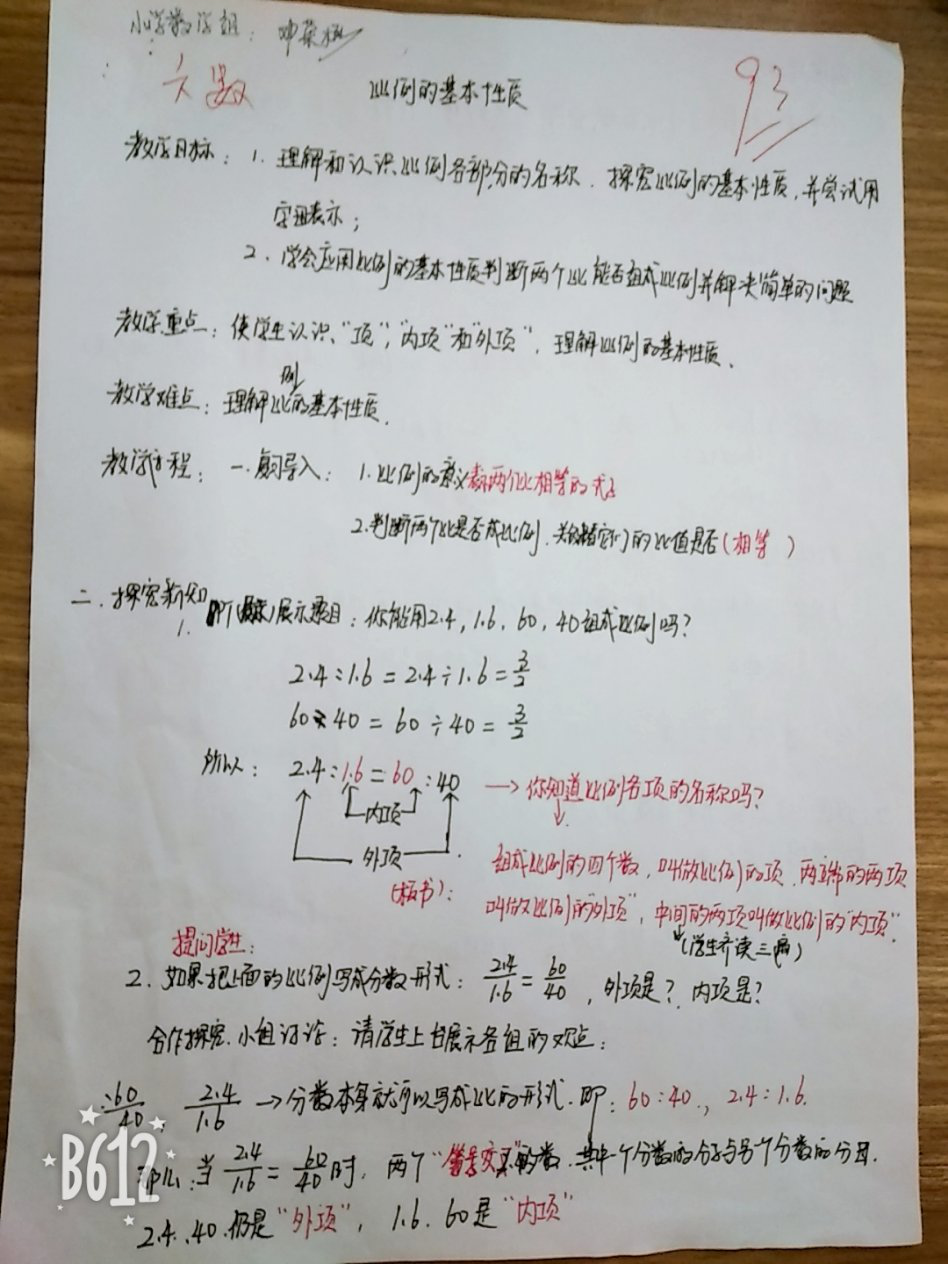 小学数学组：
六数
比例的基本性质
93
教学目标：1. 理解和认识比例各部分的名称，探究比例的基本性质，并尝试用
字母表示；
2. 学会应用比例的基本性质判断两个比能否组成比例并解决简单的问题
教学重点：使学生认识"项"，"内项"和"外项"，理解比例的基本性质、
教学难点：理解比例的基本性质.
教学过程：一. 复习导入：1. 比例的意义 表示两个比相等的式子
2. 判断两个比是否成比例，关键看它们的比值是否（相等）
二. 探究新知
1. PPT展示题目：你能用2.4，1.6，60，40组成比例吗？
2.4：1.6 = 2.4÷1.6 = 3/2
60：40 = 60÷40 = 3/2
所以：2.4：1.6 = 60：40 → 你知道比例各项的名称吗？
内项
外项
（板书）：组成比例的四个数，叫做比例的项，两端的两项
叫做比例的"外项"，中间的两项叫做比例的"内项"。
（学生齐读三遍）
提问学生：
2. 如果把上面的比例写成分数形式：2.4/1.6 = 60/40，外项是？内项是？
合作探究，小组讨论：请学生上台展示各组的观点：
60/40 2.4/1.6 → 分数本身就可以写成比的形式. 即：60：40，2.4：1.6.
当 2.4/1.6 = 60/40 时，两个"的数，其中一个分数的分子与另一个分数的分母.
2.4、40 仍是"外项"，1.6、60是"内项"
B612